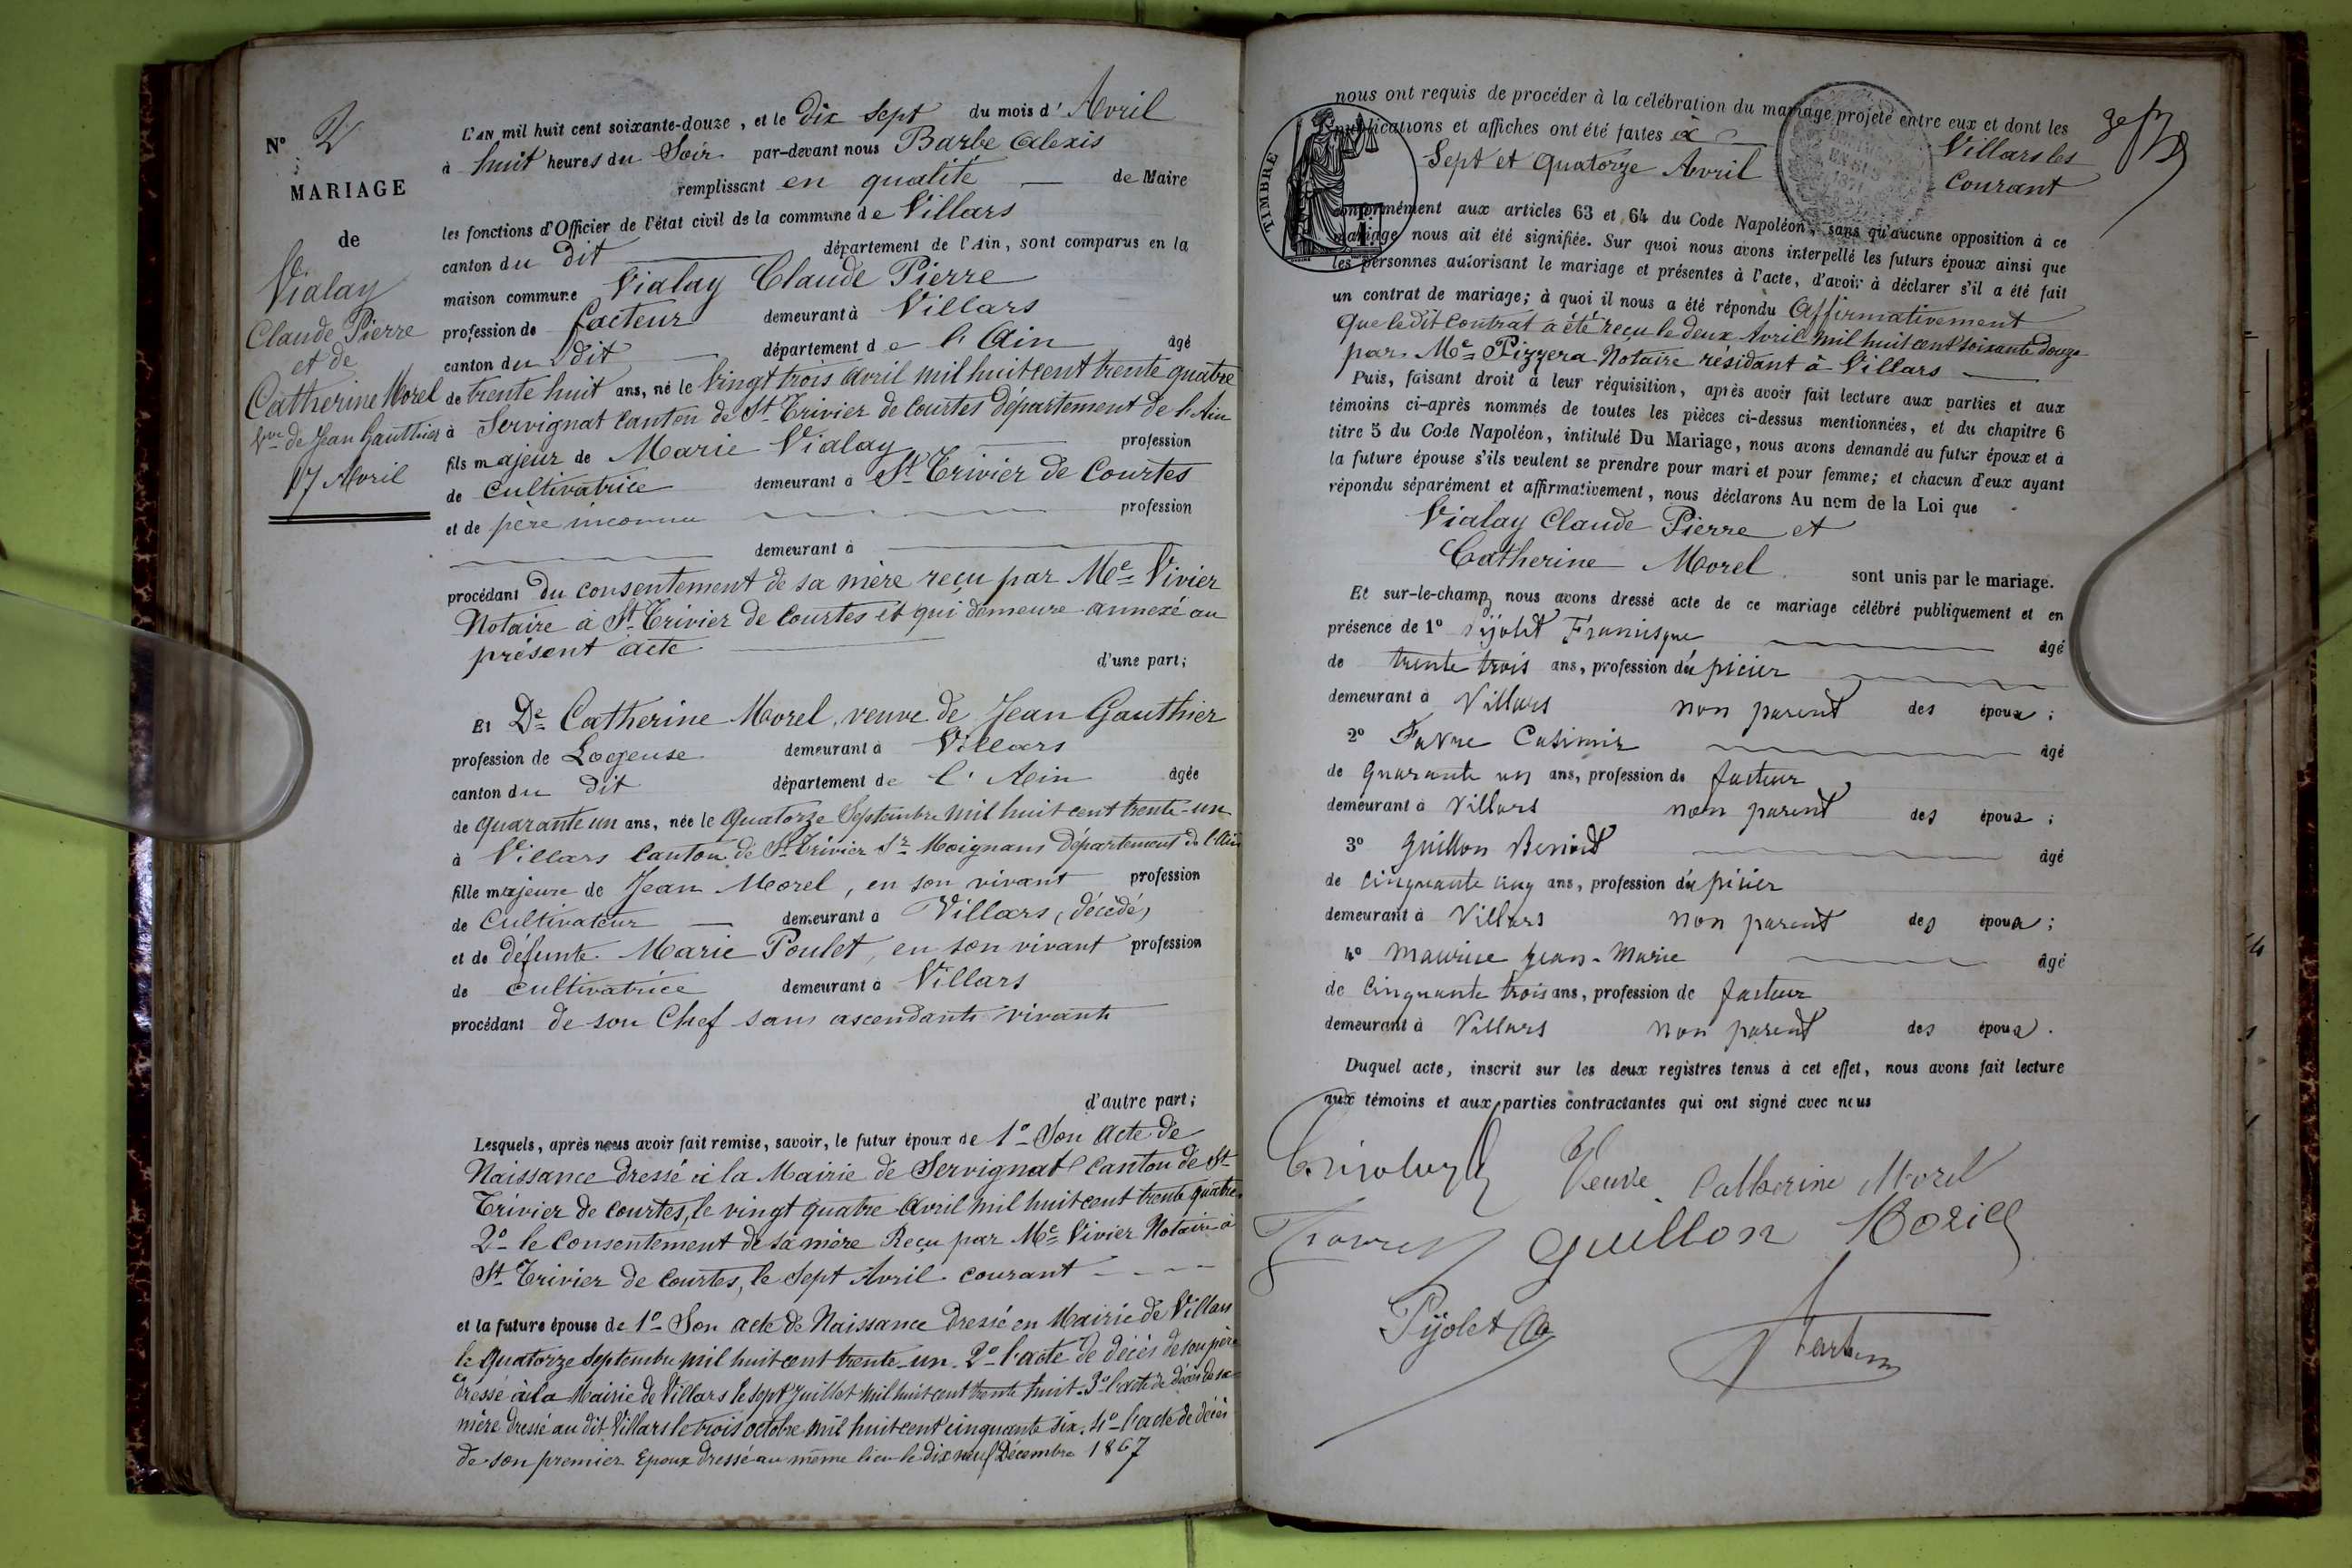 N° 2
MARIAGE
de
Vialay
Claude Pierre
et de
Catherine Morel
Vve de Jean Gauthier
17 Avril
L'AN mil huit cent soixante-douze, et le Dix Sept du mois d' Avril
à huit heures du Soir par-devant nous Barbe Alexis
remplissant en qualité de Maire
les fonctions d'Officier de l'état civil de la commune de Villars
canton du dit département de l'Ain, sont comparus en la
maison commune Vialay Claude Pierre
profession de facteur demeurant à Villars
canton du dit département de l'Ain âgé
de trente huit ans, né le Vingt trois Avril mil huit cent trente quatre
à Servignat Canton de St Trivier de Courtes département de l'Ain
fils majeur de Marie Vialay profession
de Cultivatrice demeurant à St Trivier de Courtes
et de père inconnu profession
demeurant à
procédant du consentement de sa mère reçu par Me Vivier
Notaire à St Trivier de Courtes et qui demeure annexé au
présent acte
d'une part;
Et De Catherine Morel, veuve de Jean Gauthier
profession de Logeuse demeurant à Villars
canton du dit département de l'Ain âgée
de quarante un ans, née le Quatorze Septembre mil huit cent trente-un
à Villars Canton de St Trivier Sr Moignans Département de l'Ain
fille majeure de Jean Morel, en son vivant profession
de Cultivateur demeurant à Villars, (décédé)
et de défunte Marie Poulet, en son vivant profession
de cultivatrice demeurant à Villars
procédant de son Chef sans ascendants vivants
d'autre part;
Lesquels, après nous avoir fait remise, savoir, le futur époux de 1° Son Acte de
Naissance dressé à la Mairie de Servignat Canton de St
Trivier de Courtes, le vingt quatre Avril mil huit cent trente quatre.
2° le Consentement de sa mère Reçu par Me Vivier Notaire à
St Trivier de Courtes, le Sept Avril courant
et la future épouse de 1° Son acte de Naissance dressé en Mairie de Villars
le Quatorze Septembre mil huit cent trente-un. 2° l'acte de décès de son père
dressé à la Mairie de Villars le sept Juillet mil huit cent trente huit. 3° l'acte de décès de sa
mère dressé au dit Villars le trois octobre mil huit cent cinquante six. 4° l'acte de décès
de son premier Epoux dressé au même lieu le dix neuf Décembre 1867
nous ont requis de procéder à la célébration du mariage projeté entre eux et dont les
publications et affiches ont été faites à Villars les
Sept et Quatorze Avril Courant
TIMBRE
conformément aux articles 63 et 64 du Code Napoléon, sans qu'aucune opposition à ce
mariage nous ait été signifiée. Sur quoi nous avons interpellé les futurs époux ainsi que
les personnes autorisant le mariage et présentes à l'acte, d'avoir à déclarer s'il a été fait
un contrat de mariage; à quoi il nous a été répondu Affirmativement
Que le dit Contrat a été reçu le deux Avril mil huit cent soixante douze
par Me Pizzera Notaire résidant à Villars
Puis, faisant droit à leur réquisition, après avoir fait lecture aux parties et aux
témoins ci-après nommés de toutes les pièces ci-dessus mentionnées, et du chapitre 6
titre 5 du Code Napoléon, intitulé Du Mariage, nous avons demandé au futur époux et à
la future épouse s'ils veulent se prendre pour mari et pour femme; et chacun d'eux ayant
répondu séparément et affirmativement, nous déclarons Au nom de la Loi que
Vialay Claude Pierre et
Catherine Morel sont unis par le mariage.
Et sur-le-champ nous avons dressé acte de ce mariage célébré publiquement et en
présence de 1° Pijolet Francisque âgé
de trente trois ans, profession d'épicier
demeurant à Villars non parent des époux;
2° Favre Casimir âgé
de quarante un ans, profession de facteur
demeurant à Villars non parent des époux;
3° Guillon Benoit âgé
de Cinquante cinq ans, profession d'épicier
demeurant à Villars non parent des époux;
4° Maurice Jean-Marie âgé
de Cinquante trois ans, profession de facteur
demeurant à Villars non parent des époux.
Duquel acte, inscrit sur les deux registres tenus à cet effet, nous avons fait lecture
aux témoins et aux parties contractantes qui ont signé avec nous
Veuve Catherine Morel
Guillon Moricé
Pijolet